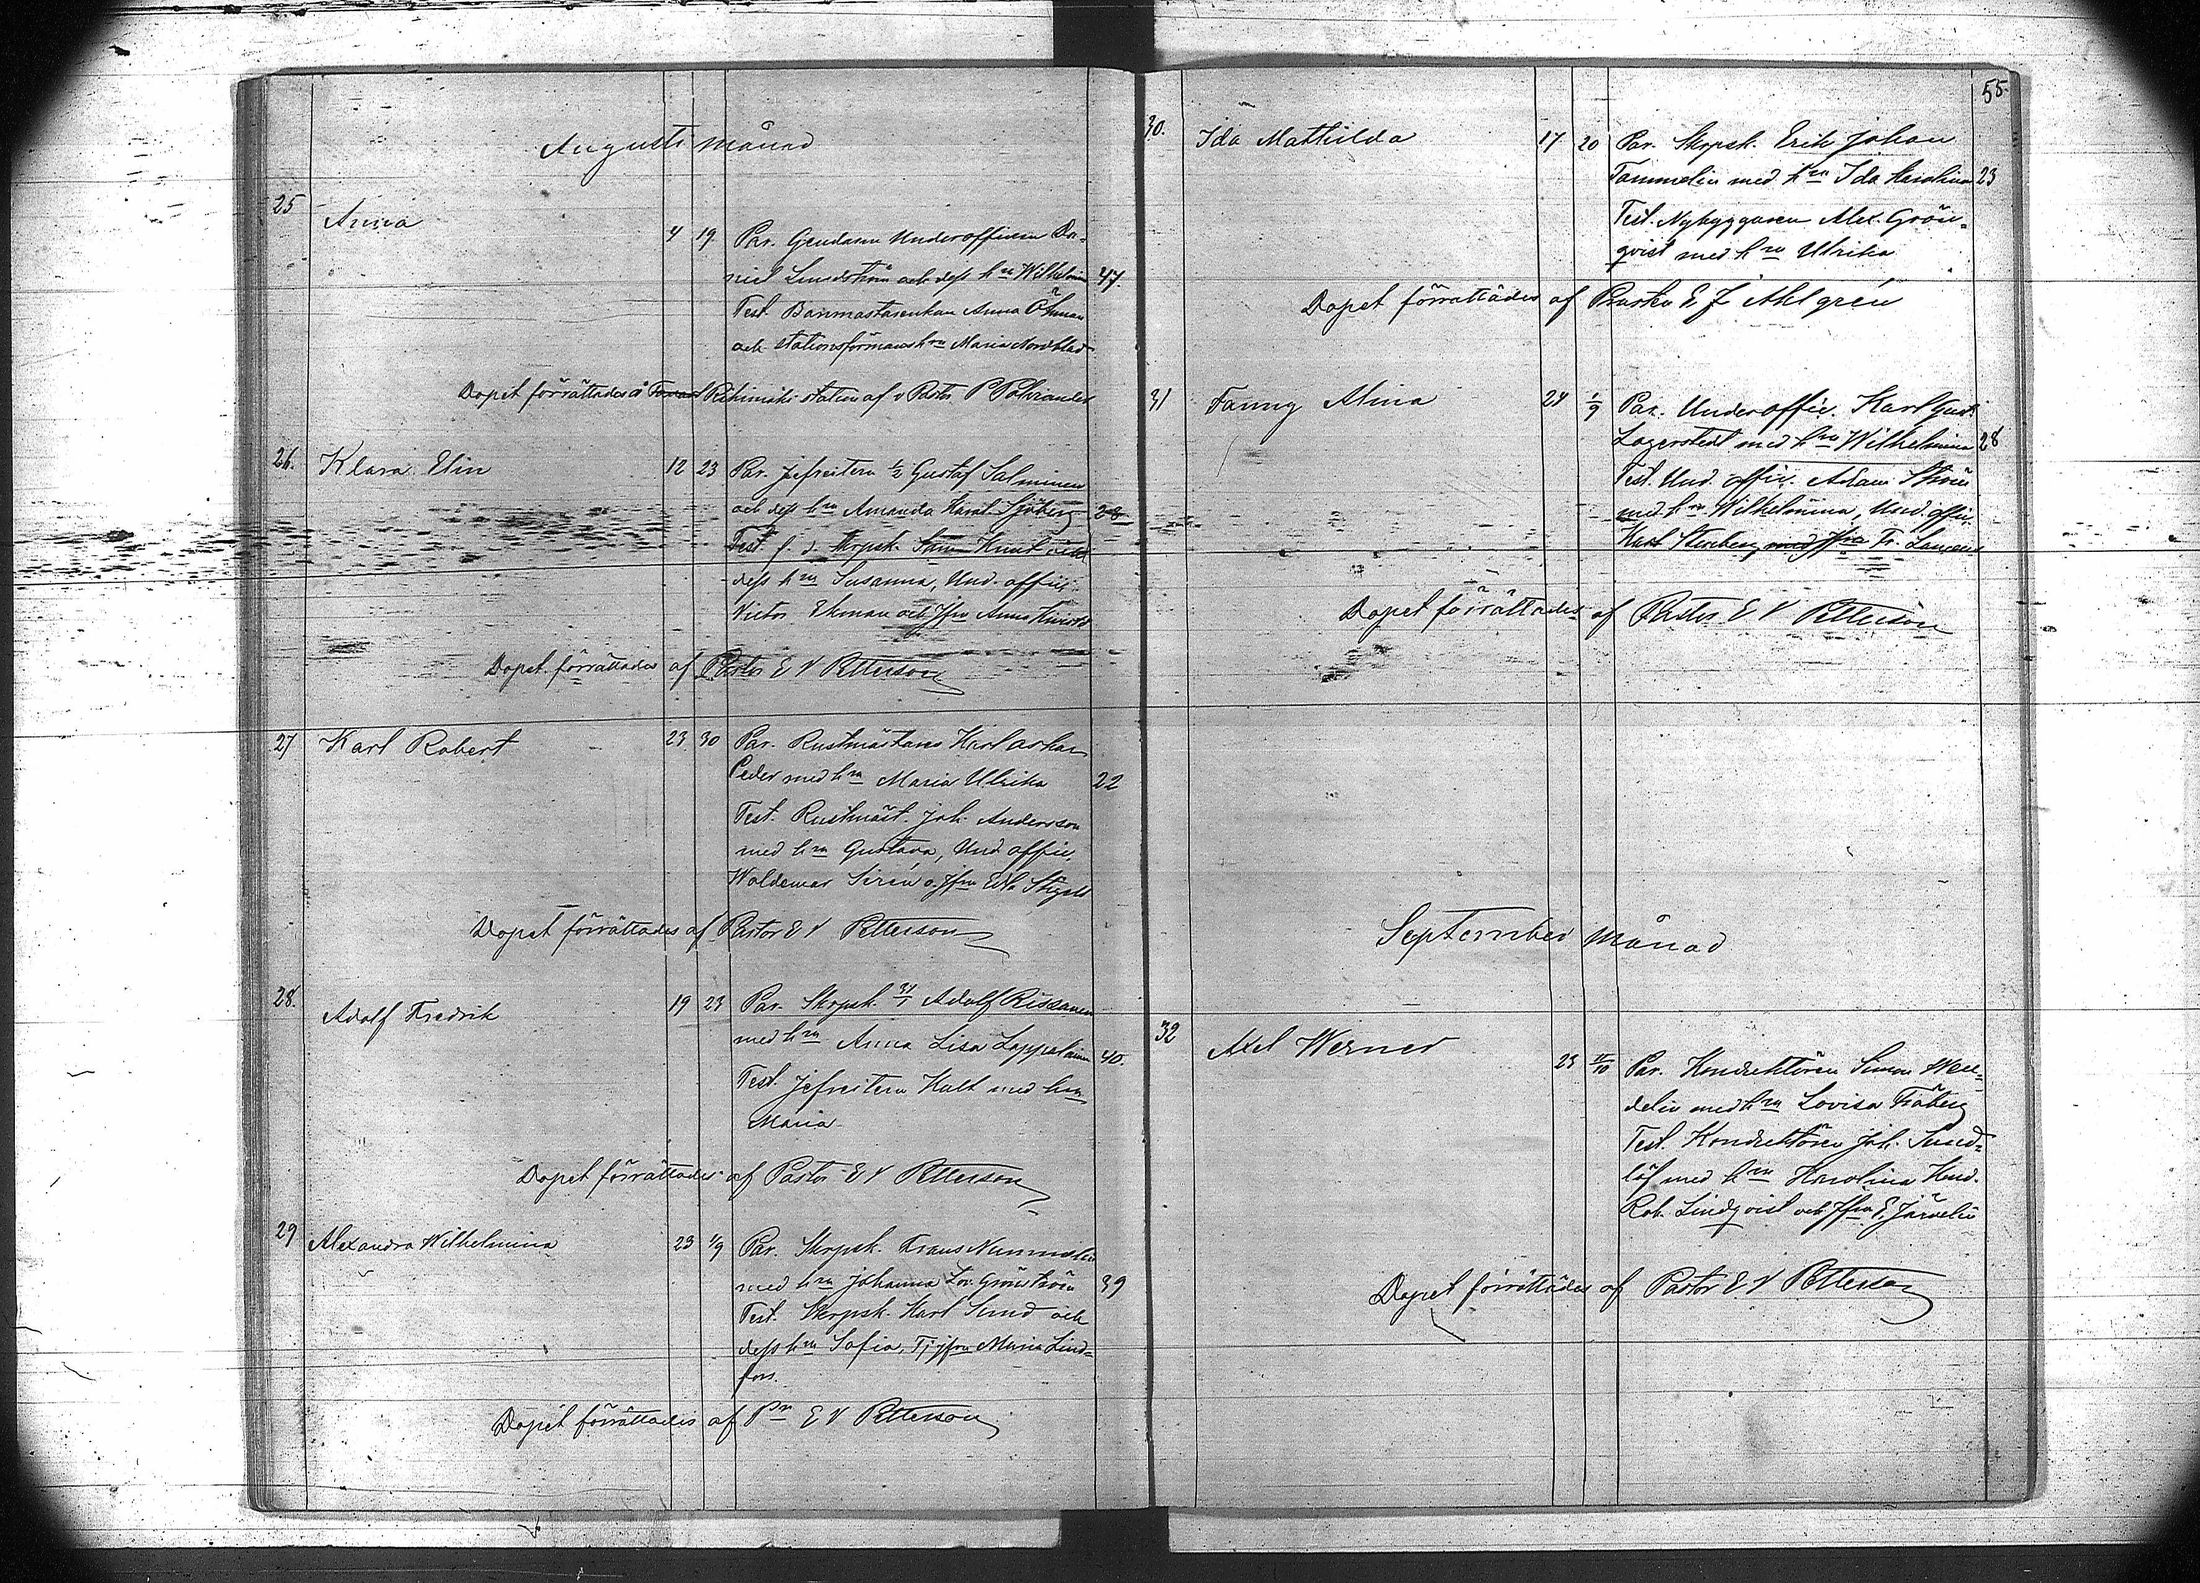 Augusti månad
25 Anna 4 19 Par. Gendarm Underofficern Da-
niel Lindström och dess hru Wilhelmina 47.
Test. Banmästarenkan Anna Öhman
och stationsförmans hru Maria Nordblad
Dopet förrättades å station af v Pastor P
26. Klara Elin 12 23 Par. Jefreitern Gustaf Salminen
och dess hru Amanda Karol. Sjöberg 28
Test. f. d. Skrpsk. Sam och
dess hru Susanna, Und. offic.
Victor Ekman och Jfru Anna
Dopet förrättades af Pastor E V Petterson
27 Karl Robert 23 30 Par. Rustmästaren Karl Oskar
Ceder med hru Maria Ulrika 22
Test. Rustmäst. Joh. Andersson
med hru Gustava, Und. offic.
Woldemar Sirén o. Jfru
Dopet förrättades af Pastor E V Petterson
28. Adolf Fredrik 19 23 Par. Skrpsk. Adolf Rissanen
med hru Anna Lisa Lappalainen 40.
Test. Jefreitern Halt med hru
Maria
Dopet förrättades af Pastor E V Petterson
29 Alexandra Wilhelmina 23 1/9 Par. Skrpsk. Frans Nummelin
med hru Johanna Lov. Grönström 39
Test. Skrpsk. Karl Sund och
dess hru Sofia, Tj. jfru Maria Lind-
fors.
Dopet förrättades af Pr E V Petterson
55.
30. Ida Mathilda 17 20 Par. Skrpsk. Erik Johan
Tammelin med hru Ida Karolina 23
Test. Nybyggaren Alex. Grön-
qvist med hru Ulrika
Dopet förrättades af Prosten E J Ahlgrén
31 Fanny Alina 24 1/9 Par. Underoffic. Karl Gust.
Lagerstedt med hru Wilhelmina 28
Test. Und. offic. Adam Ström
med hru Wilhelmina, Und. offic.
Karl Stenberg med Jfru Fr.
Dopet förrättades af Pastor E V Petterson
September månad
32 Axel Werner 23 Par. Konduktören Simon Wen-
delin med hru Lovisa Fröberg
Test. Konduktören Joh. Sund-
löf med hru Karolina Kond.
Rob. Lindqvist och Jfru E. Järvelin
Dopet förrättades af Pastor E V Petterson